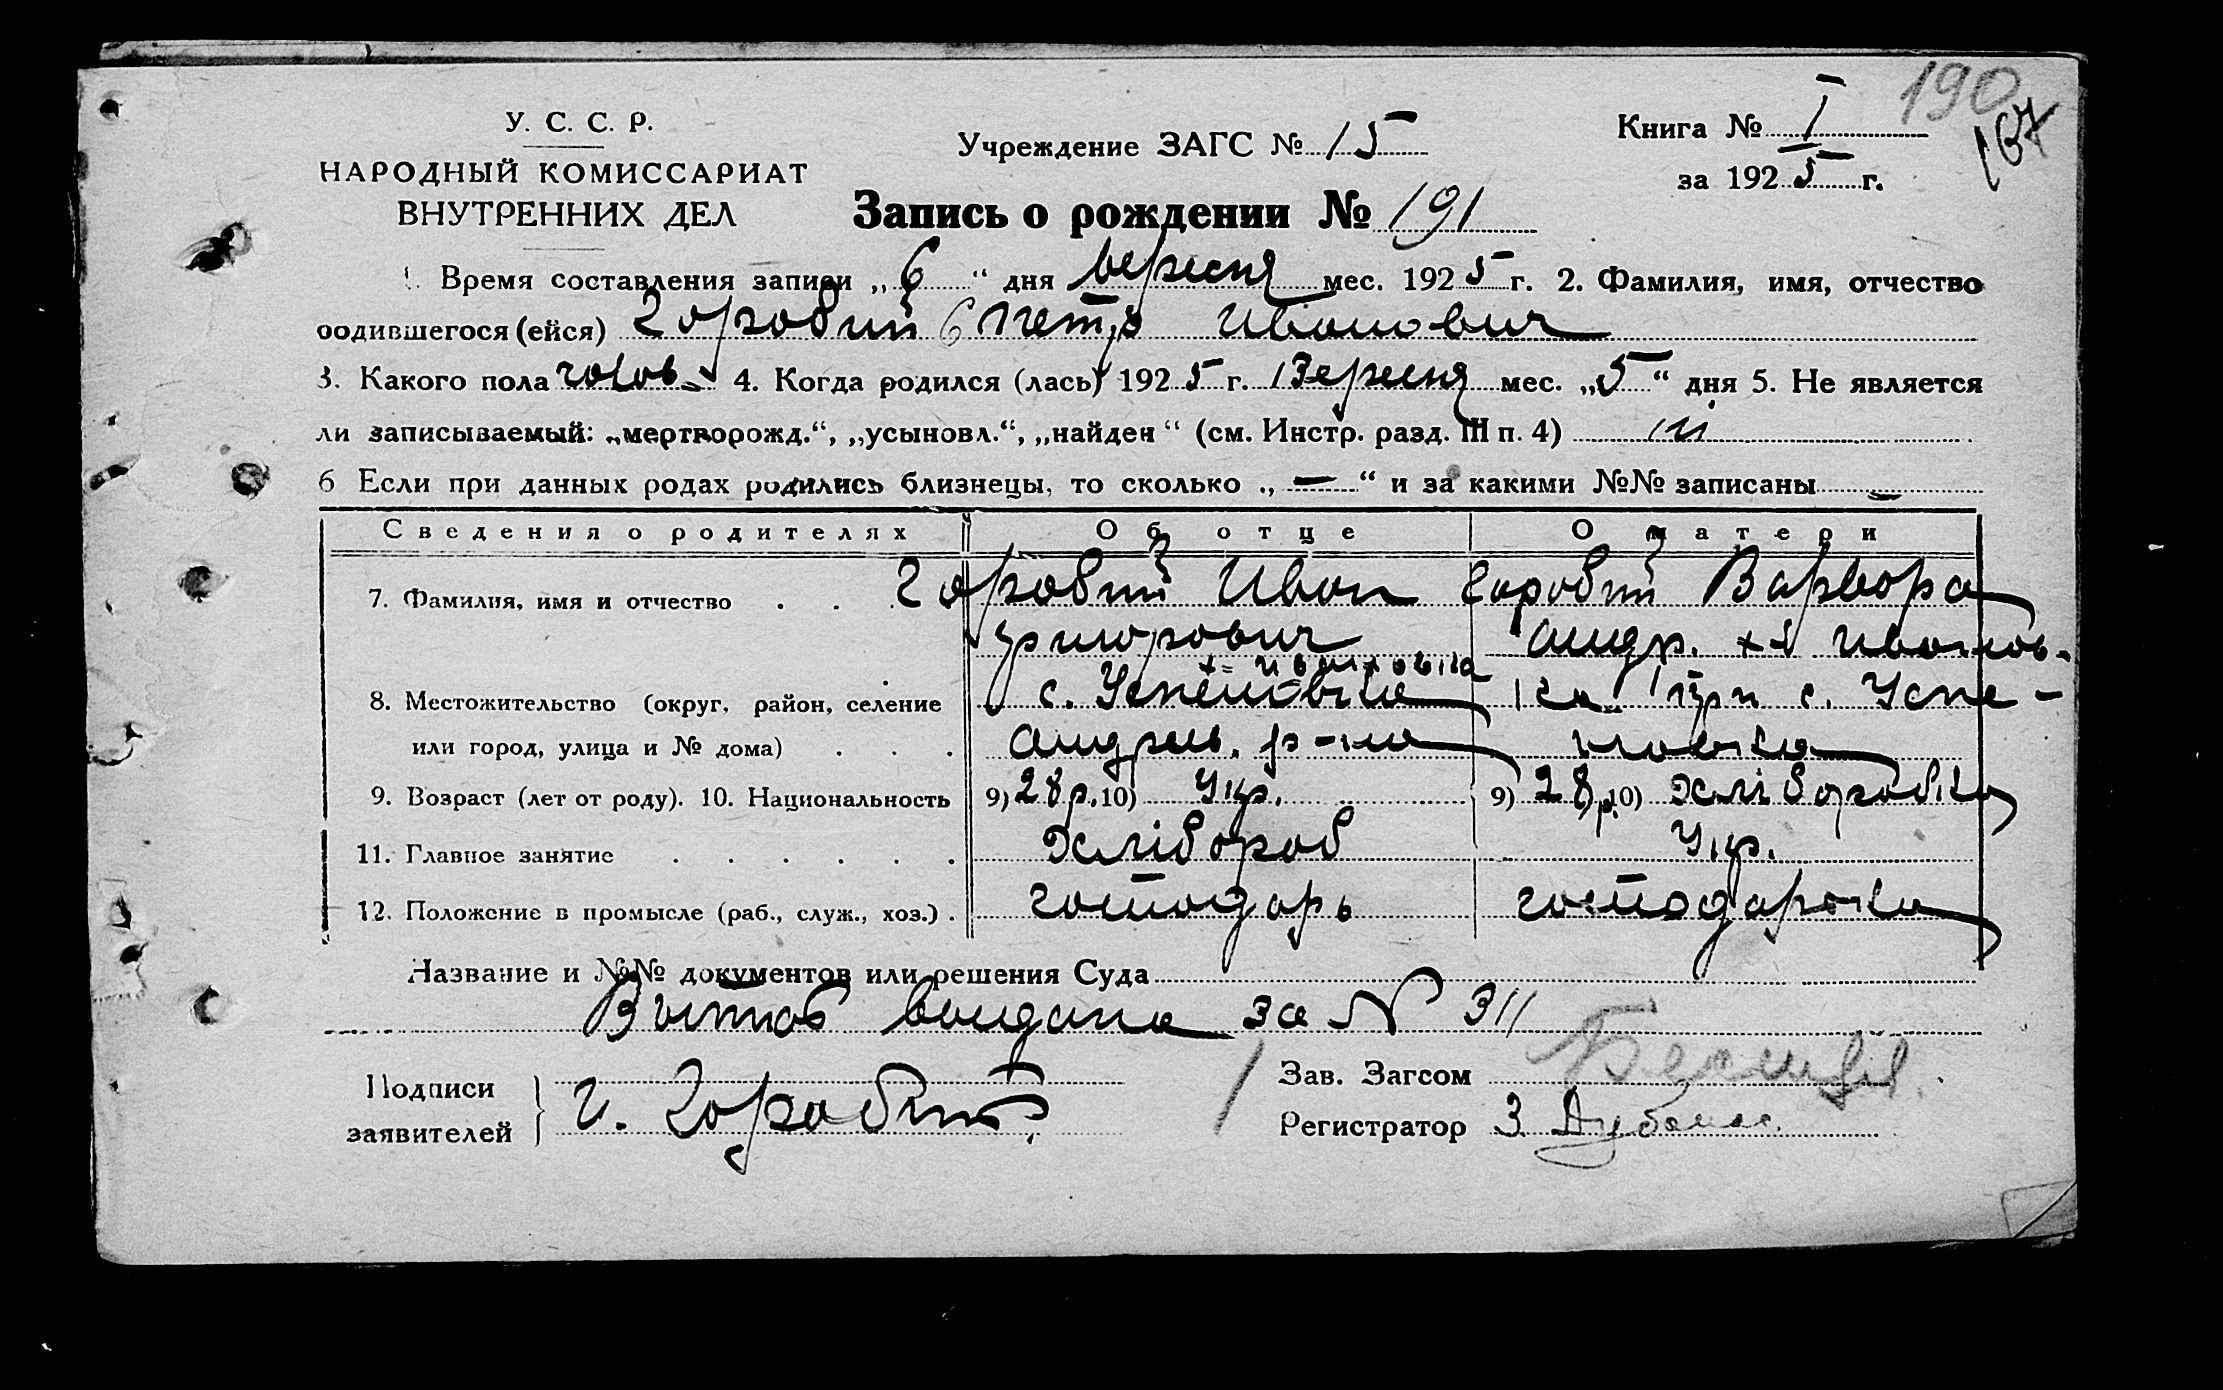 190
167
У. С. С. Р.
НАРОДНЫЙ КОМИССАРИАТ
ВНУТРЕННИХ ДЕЛ
Учреждение ЗАГС № 15
Книга № I
за 1925 г.
Запись о рождении № 191
1. Время составления записи „6“ дня вересня мес. 1925 г. 2. Фамилия, имя, отчество
родившегося (ейся) Горовий Петро Иванович
3. Какого пола чолов. 4. Когда родился (лась) 1925 г. Вересня мес. „5“ дня 5. Не является
ли записываемый: „мертворожд.“, „усыновл.“, „найден“ (см. Инстр. разд. III п. 4) ні
6 Если при данных родах родились близнецы, то сколько „—“ и за какими №№ записаны —
Сведения о родителях Об отце О матери
7. Фамилия, имя и отчество . . . Горовий Иван Горовий Варвара
григорович андр. х-І Иванов-
х= ивановка
8. Местожительство (округ, район, селение с. Успеновка ка гур с. Успе-
или город, улица и № дома) . . . андреев. р-на новка
9. Возраст (лет от роду). 10. Национальность 9) 28 р. 10) Укр. 9) 28 р. 10) Хліборобка
11. Главное занятие . . . . . . Хлібороб Укр.
12. Положение в промысле (раб., служ., хоз.) . господарь господарька
Название и №№ документов или решения Суда
Витяг видана за № 311
Подписи
заявителей
И. Горовий
Зав. Загсом
Регистратор З.